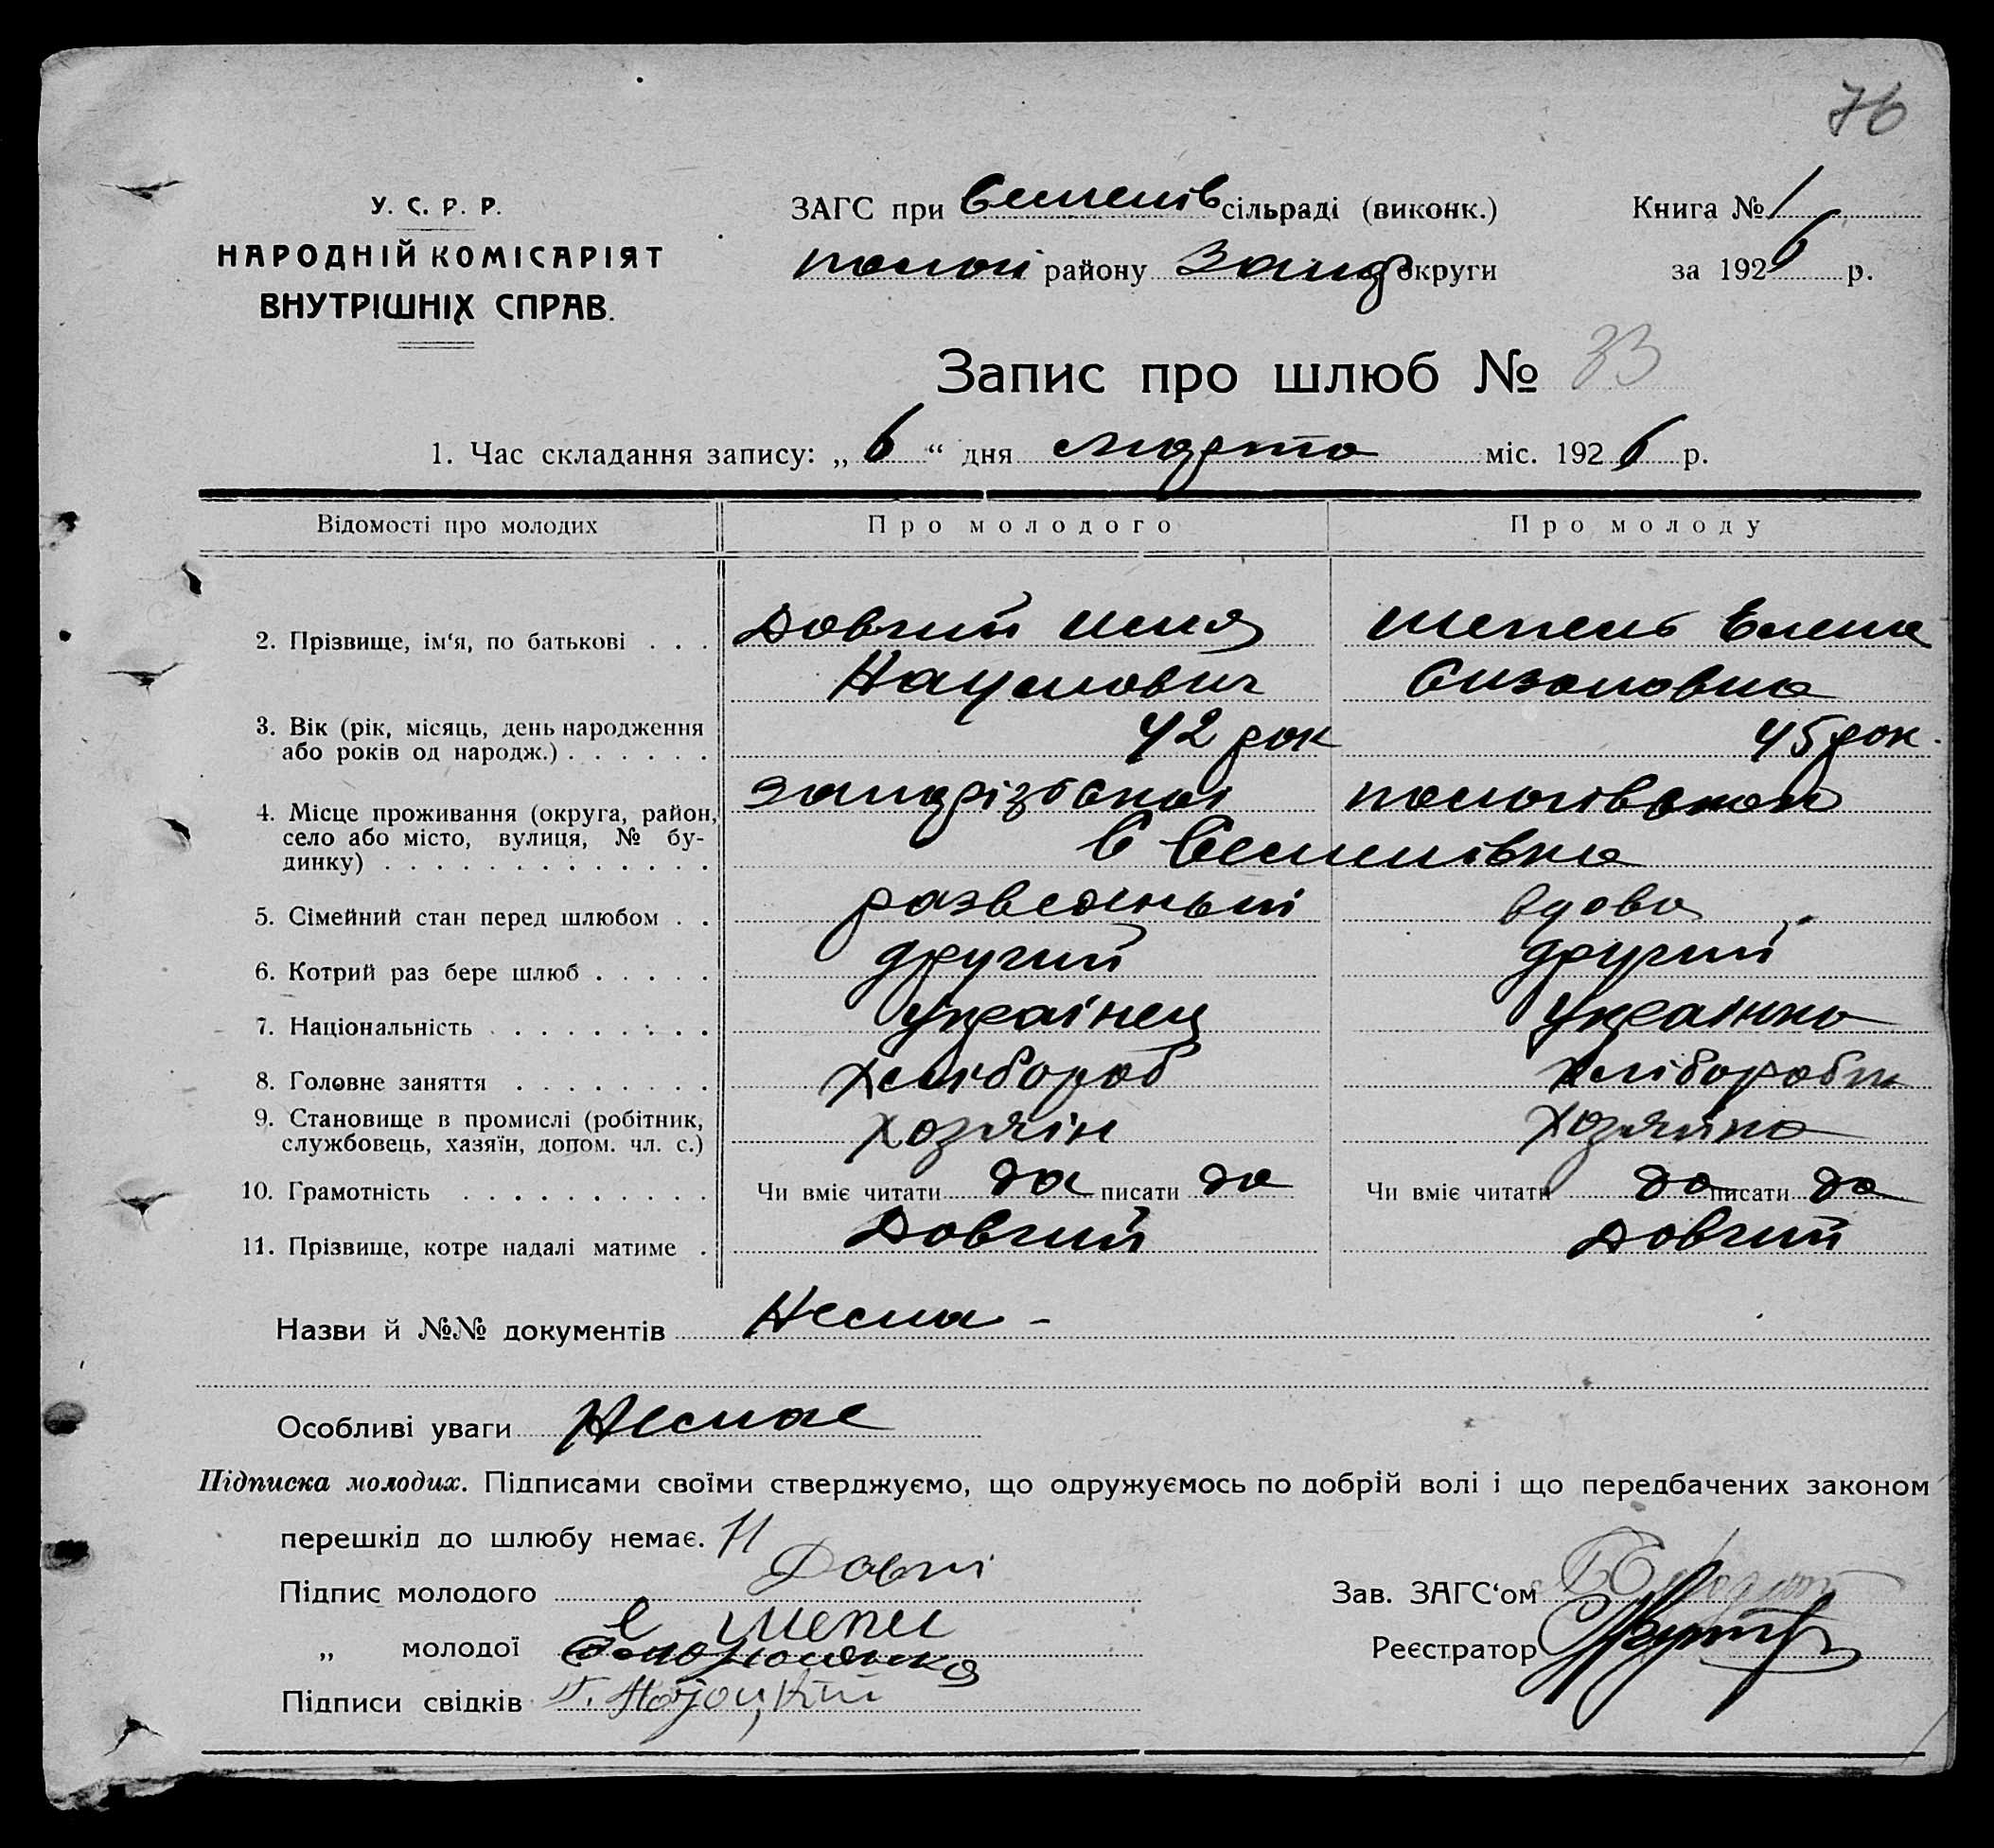 76
У. С. Р. Р.
НАРОДНІЙ КОМІСАРІЯТ
ВНУТРІШНІХ СПРАВ.
ЗАГС при Семенів сільраді (виконк.)
Книга № 1
району Запор округи
за 1926 р.
Запис про шлюб № 33
1. Час складання запису: „6“ дня марта міс. 1926 р.
Відомості про молодих
Про молодого
Про молоду
2. Прізвище, ім‘я, по батькові . . .
Довгий Илия
Наумович
Шепель Елена
Сизоновна
3. Вік (рік, місяць, день народження
або років од народж.) . . . . . .
42 рок
45 рок.
4. Місце проживання (округа, район,
село або місто, вулиця, № бу-
динку) . . . . . . . . . . . . .
запорізської
пологівской
С Семенівка
5. Сімейний стан перед шлюбом . .
разведеный
вдова
6. Котрий раз бере шлюб . . . . .
другий
другий
7. Національність . . . . . . . .
українец
українка
8. Головне заняття . . . . . . . .
хлібороб
9. Становище в промислі (робітник,
службовець, хазяїн, допом. чл. с.)
хозяін
хозяйка
10. Грамотність . . . . . . . . . .
Чи вміє читати да писати да
Чи вміє читати да писати да
11. Прізвище, котре надалі матиме .
Довгий
Довгий
Назви й №№ документів Нема -
Особливі уваги Немає
Підписка молодих. Підписами своїми стверджуємо, що одружуємось по добрій волі і що передбачених законом
перешкід до шлюбу немає.
Підпис молодого И Довги
„ молодої Е Шепел
Підписи свідків
Зав. ЗАГС‘ом
Реєстратор